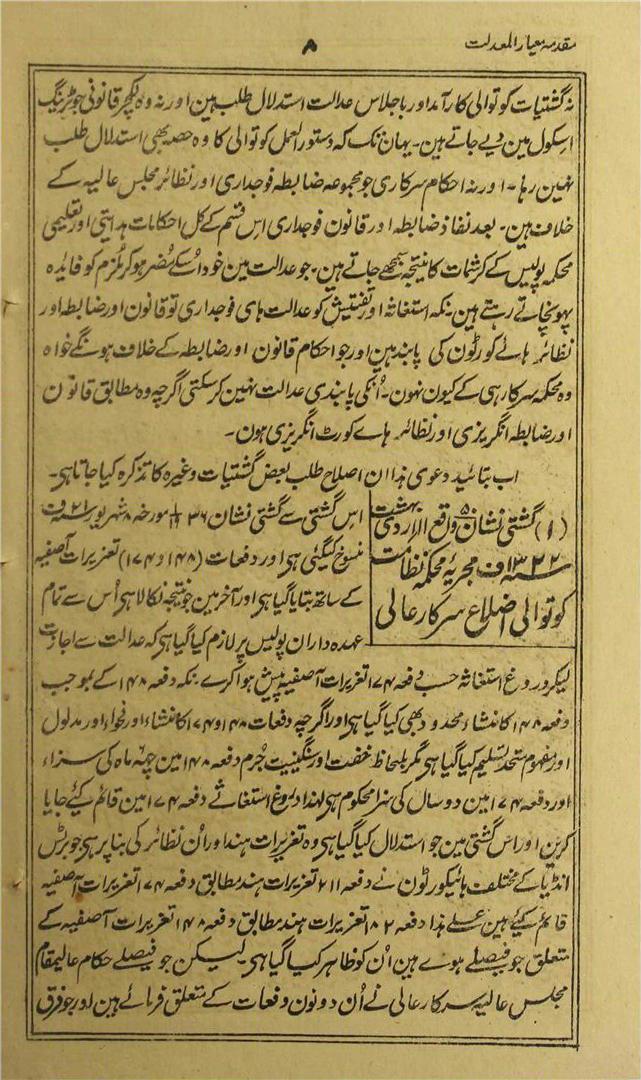 مقدمہ معیار المعدلت
۸
نہ گشتیات کوتوالی کارآمد اور باجلاس عدالت استدلال طلب ہین اور نہ وہ لکچر قانونی جو ٹرینگ
اسکول مین دیے جاتے ہین۔ یہان تک کہ دستور العمل کوتوالی کا وہ حصہ بھی استدلال طلب
نہین رہا۔ اور نہ احکام سرکاری جو مجموعہ ضابطہ فوجداری اور نظائر مجلس عالیہ کے
خلاف ہین۔ بعد نفاذ ضابطہ اور قانون فوجداری اس قسم کے کل احکامات ہدایتی اور تعلیمی
محکمہ پولیس کے کرشمات کا نتیجہ سمجھے جاتے ہین۔ جو عدالت مین خود اُسکے مُضر ہوکر مُلزم کو فایدہ
پہونچاتے رہتے ہین۔ نکہ استغاثہ اور تفتیش کو عدالت ہای فوجداری تو قانون اور ضابطہ اور
نظائر ہائے کورٹون کی پابند ہین اور جو احکام قانون اور ضابطہ کے خلاف ہونگے خواہ
وہ محکمہ سرکار ہی کے کیون نہون۔ اُنکی پابندی عدالت نہین کرسکتی اگرچہ وہ مطابق قانون
اور ضابطہ انگریزی اور نظائر ہاے کورٹ انگریزی ہون۔
اب بتائید دعوی ہذا ان اصلاح طلب بعض گشتیات وغیرہ کا تذکرہ کیا جاتا ہی۔
(۱) گشتی نشان ۵ واقع الراردی بہشت
۱۳۲۲ ف مجریۂ محکمہ نظامت
کوتوالی اضلاع سرکار عالی
اس گشتی سے گشتی نشان مورخہ ۸ شہریور
منسوخ کیگئی ہی اور دفعات (۱۴۸ و ۱۷۴) تعزیرات آصفیہ
کے ساتھ بتایا گیا ہی اور آخر مین جو نتیجہ نکالا ہی اُس سے تمام
عہدہ داران پولیس پر لازم کیا گیا ہی کہ عدالت سے اجازت
لیکر دروغ استغاثہ حسب دفعہ ۱۷۴ تعزیرات آصفیہ پیش ہوا کرے نکہ دفعہ ۱۴۸ کے بموجب
دفعہ ۱۴۸ کا منشاء محدود بھی کیا گیا ہی اور اگرچہ دفعات ۱۴۸ و ۱۷۴ کا منشاء اور فحواء اور مدلول
اور مفہوم متحد تسلیم کیا گیا ہی مگر بلحاظ خفت اور سنگینیت جُرم دفعہ ۱۴۸ مین چھہ ماہ کی سزاء
اور دفعہ ۱۷۴ مین دو سال کی سزا محکوم ہی لہذا دروغ استغاثے دفعہ ۱۷۴ مین قائم کیئے جایا
کرین اور اس گشتی مین جو استدلال کیا گیا ہی وہ تعزیرات ہند اور اُن نظائر کی بنا پر ہی جو برٹش
انڈیا کے مختلف ہائیکورٹون نے دفعہ ۲۱۱ تعزیرات ہند مطابق دفعہ ۱۷۴ تعزیرات آصفیہ
قائم کیئے ہین علے ہذا دفعہ ۱۸۲ تعزیرات ہند مطابق دفعہ ۱۴۸ تعزیرات آصفیہ کے
متعلق جو فیصلے ہوے ہین اُن کو ظاہر کیا گیا ہی۔ لیکن جو فیصلے حکام عالیمقام
مجلس عالیہ سرکار عالی نے اُن دونون دفعات کے متعلق فرمائے ہین اور جو فرق